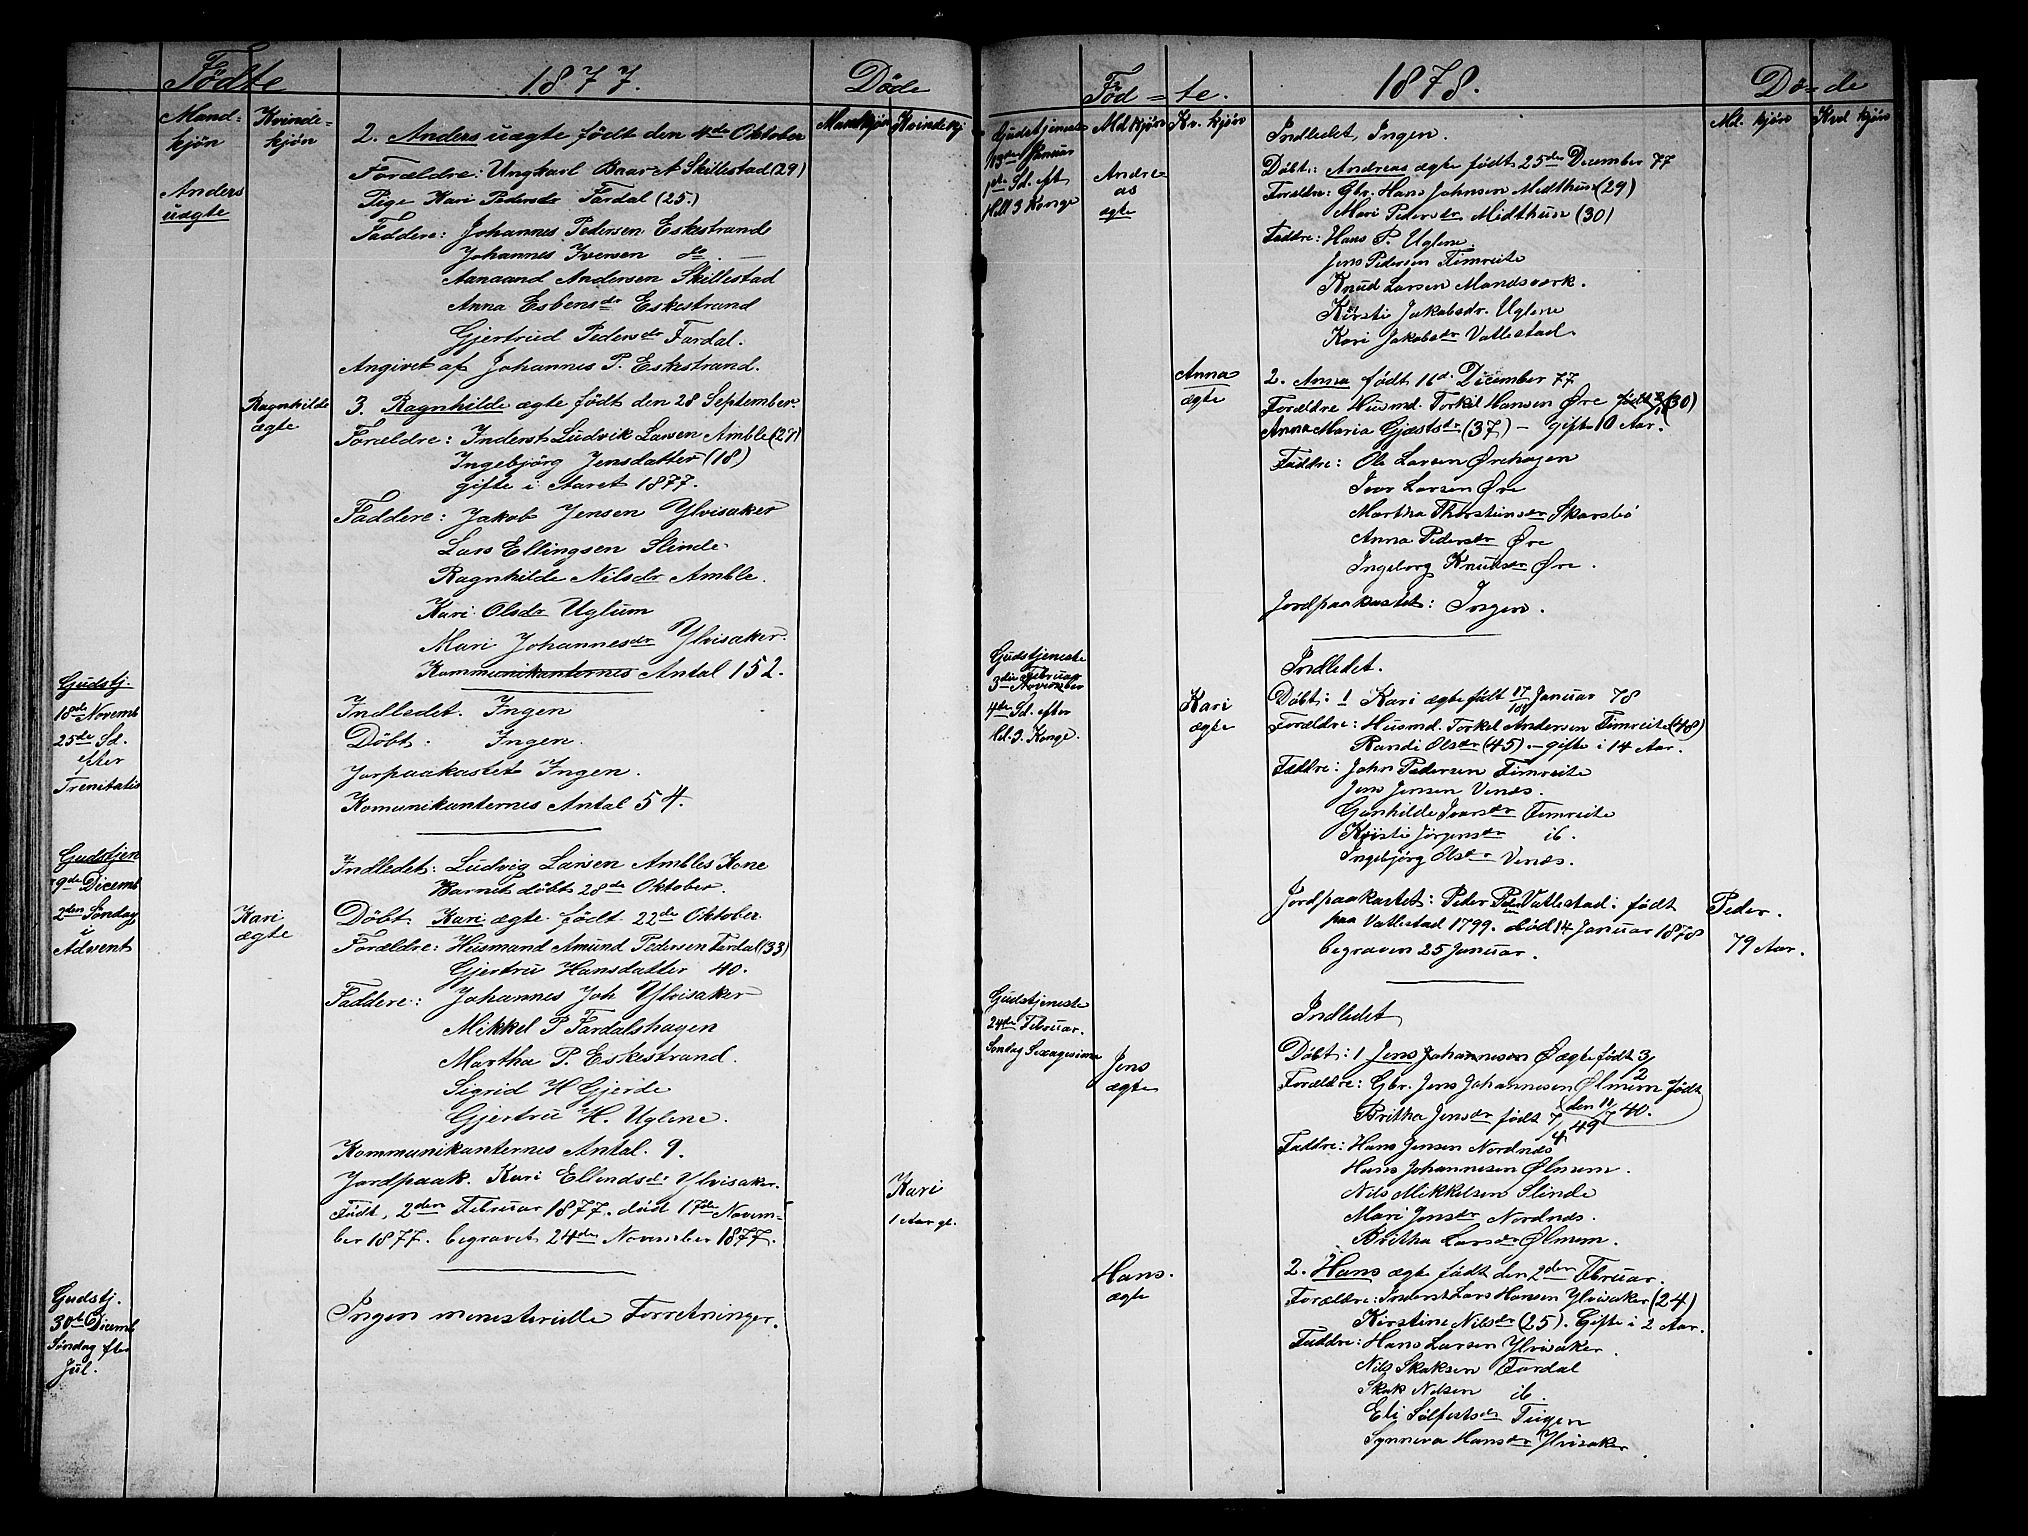 Fødte
1877.
Døde
Mand-
kjøn
Kvinde-
kjøn
Mandkjøn
Kvindekj
Anders
uægte
2. Anders uægte født den 4de Oktober
Forældre: Ungkarl Baar A Skillestad (29)
Pige Kari Pedersdr Fardal (25.)
Faddere: Johannes Pedersen Eskestrand
Johannes Iversen do. —
Aanaand Andersen Skillestad
Anna Esbensdr Eskestrand
Gjertrud Pedersdr Fardal.
Angivet af Johannes P. Eskestrand.
Ragnhilde
ægte
3. Ragnhilde ægte født den 28 September.
Forældre: Inderst Ludvik Larsen Amble (29)
Ingebjörg Jensdatter (18)
gifte i Aaret 1877.
Faddere: Jakob Jensen Ylvisaker
Lars Ellingsen Slinde
Ragnhilde Nilsdr Amble.
Kari Olsdr Uglum
Mari Johannesdr Ylvisaker.
Kommunikanternes Antal 152.
Gudstj.
18de Novemb
25de Sd.
efter
Trenitatis
Indledet. Ingen
Døbt: Ingen.
Jorpaakastet Ingen.
Komunikanternes Antal 54.
Gudstjen
9de Dicemb
2den Søndag
i
Advent
Indledet: Ludvig Larsen Ambles Kone
Barnet döbt 28de Oktober.
Kari
ægte
Døbt. Kari ægte født 22de Oktober
Forældre: Husmand Amund Pedersen Fardal (33)
Gjertru Hansdatter 40.
Faddere: Johannes Joh Ylvisaker
Mikkel P Fardalshagen
Martha P. Eskestrand.
Sigrid H Gjerde
Gjertru H. Uglene.
Kommunikanternes Antal. 9.
Jordpaak. Kari Ellendsdr Ylvisaker.
Født, 2den Februar 1877. död 17de Novem-
ber 1877. begravet 24den November 1877.
Kari
1 Aar gl.
Gudstj.
30te Dicemb
Søndag efter
Jul.
Ingen menesterielle Forretninger.
Fød-te.
1878.
Dö-de
Gudstjeneste
Md kjøn
Kv. kjøn
Md. kjøn
Kvd kjøn
13de Januar
1ste Sd. eft
Hell 3 Konge
Andre-
as
ægte
Indledet, Ingen.
Döbt: Andreas ægte født 25de December 77
Forældre: Gbr. Hans Johnsen Midthun (29)
Mari Pedersdr Midthun (30)
Faddre: Hans P. Uglene
Jens Pedersen Fimreite
Knud Larsen Mandsværk.
Kirsti Jakobsdr. Uglene
Kari Jakobsdr Vallestad.
Anna
ægte
2. Anna født 16d. Dicember 77
Forældre Husmd. Torkil Hansen Øre (30)
Anna Maria Gjæstsdr (37) - gifte 10 Aar.
Faddre: Ole Larsen Ørehagen
Ivar Larsen Øre
Martha Thorsteinsdr Skarsbö
Anna Pedersdr Øre
Ingeborg Knutsdr Øre.
Jordpaakastet: Ingen.
Gudstjeneste
3die Februar
November
4de Sd. efter
hl. 3. Konge.
Kari
ægte
Indledet.
Döbt: 1 Kari ægte født 17 Januar 78
Forældre: Husmd. Torkel Andersen Fimreite (48)
Randi Olsdr (45). - gifte i 14 Aar.
Faddre: John Pedersen Fimreite
Jens Jensen Venæs.
Gunhilde Ivarsdr Fimreite
Kristi Jörgensdr ib.
Ingebjörg Olsdr Venæs.
Jordpaakastet: Peder Peder Vallestad. født
paa Vallestad 1799. död 14 Januar 1878
begraven 25 Januar.
Peder.
79 Aar.
Gudstjeneste
24de Februar.
Søndag Sexagesima
Jens
ægte
Indledet
Döbt: 1 Jens Johannesen Ø ægte født 3/2
Forældre: Gbr. Jens Johannesen Ølmem født
den 11/7 40.
Britha Jensdr født 7/4 49
Faddre: Hans Jensen Nordnæs
Hans Johannesen Ølmem.
Nils Mikkelsen Slinde
Mari Jensdr Nordnæs.
Britha Larsdr Ølmem.
Hans.
ægte
2. Hans ægte født den 2den Februar.
Forældre: Inderst Lars Hansen Ylvisaker (24)
Kirstine Nilsdr (25). Gifte i 2 Aar.
Faddre: Hans Larsen Ylvisaker.
Nils Skaksen Fardal
Skak Nilsen ib.
Eli Sölfestsdr Tugen
Synneva Hansdr Ylvisaker